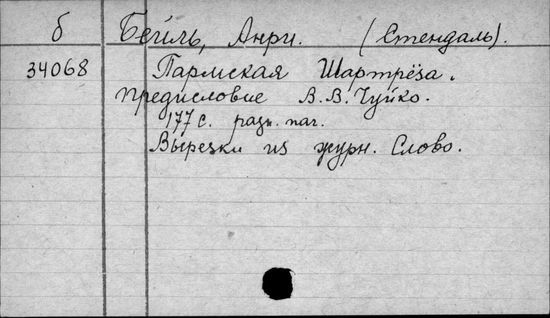 б Бейль, Анри. (Стендаль).
34068 Пармская Шартрёза.
предисловие В.В. Чуйко.
177 с. разн. паг.
Вырезки из журн. Слово.